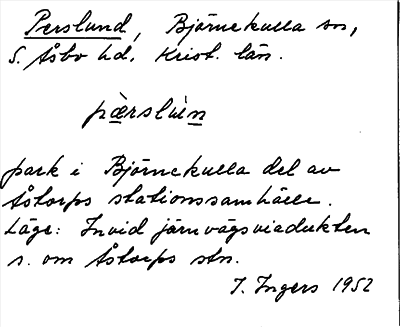 Perslund, Björnekulla sn,
S. Åsbo hd. Krist. län.
pæ̀rslùen
park i Björnekulla del av
Åstorps stationssamhälle.
Läge: Invid järnvägsviadukten
s. om Åstorps stn.
I. Ingers 1952